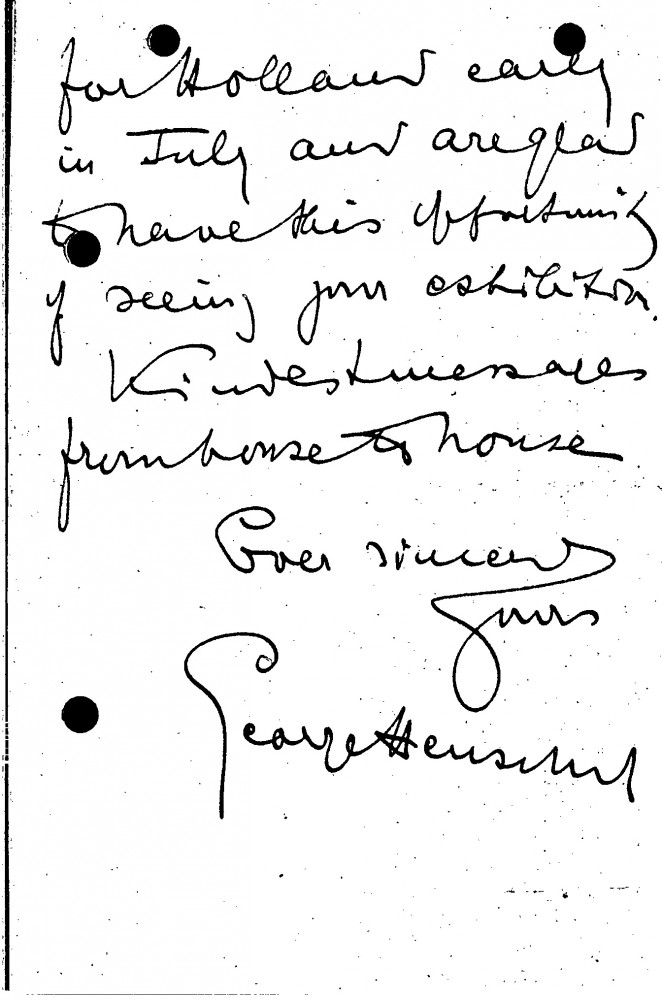 for Holland early
in July and are glad
to have this opportunity
of seeing your exhibition.
Kindest messages
from house to house
Ever sincerely
yours
George Henschel